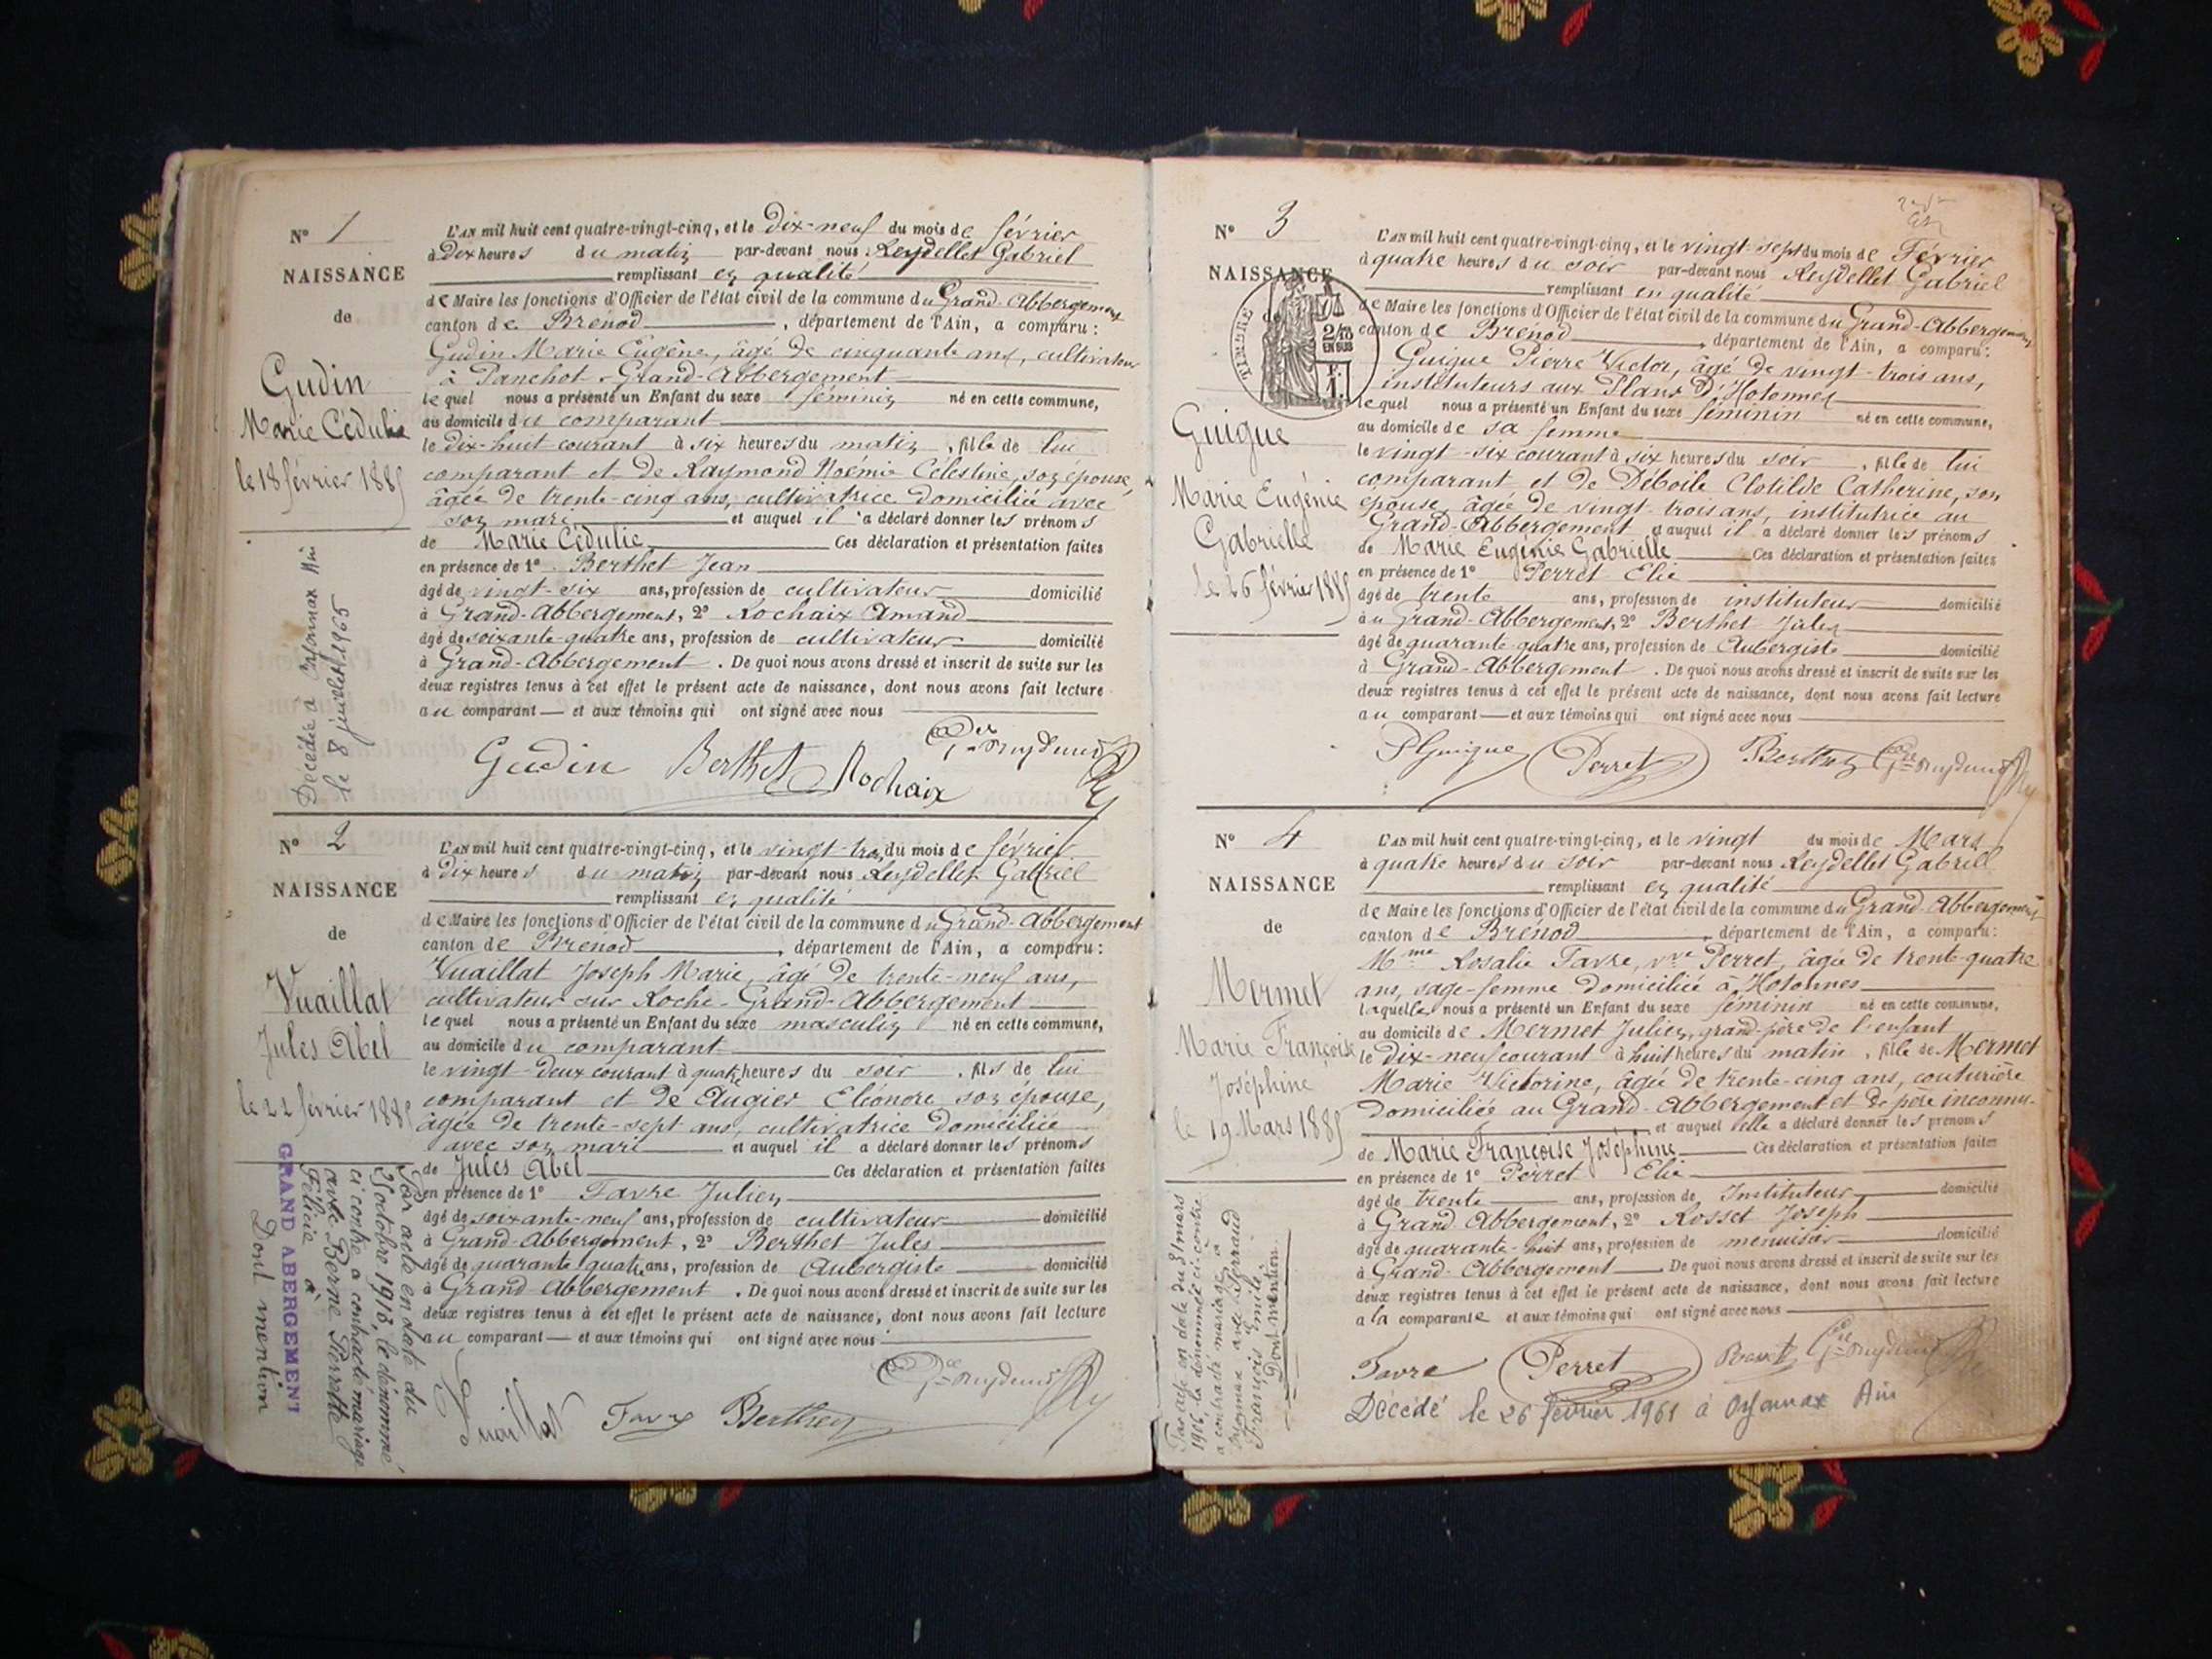 N° 1
NAISSANCE
de
Gudin
Marie Cédulie
le 18 février 1885
Décédée à Oyonnax Ain
le 8 juillet 1965
L'AN mil huit cent quatre-vingt-cinq, et le Dix-neuf du mois de février
à Dix heures du matin par-devant nous Reydellet Gabriel
remplissant en qualité
de Maire les fonctions d'Officier de l'état civil de la commune du Grand-Abbergement
canton de Brénod, département de l'Ain, a comparu:
Gudin Marie Eugène, âgé de cinquante ans, cultivateur
à Panchot-Grand-Abbergement
lequel nous a présenté un Enfant du sexe féminin né en cette commune,
au domicile du comparant
le dix-huit courant à six heures du matin, fille de lui
comparant et de Raymond Noémie Célestine, son épouse,
âgée de trente-cinq ans, cultivatrice domiciliée avec
son mari et auquel il a déclaré donner les prénoms
de Marie Cédulie Ces déclaration et présentation faites
en présence de 1° Berthet Jean
âgé de vingt-six ans, profession de cultivateur domicilié
à Grand-Abbergement, 2° Rochaix Amand
âgé de soixante-quatre ans, profession de cultivateur domicilié
à Grand-Abbergement. De quoi nous avons dressé et inscrit de suite sur les
deux registres tenus à cet effet le présent acte de naissance, dont nous avons fait lecture
au comparant et aux témoins qui ont signé avec nous
Gudin Berthet Rochaix
N° 2
NAISSANCE
de
Vuaillat
Jules Abel
le 22 février 1885
Par acte en date du
octobre 1918, le dénommé
ci contre a contracté mariage
avec Berne Pierrette
Félicie à
GRAND ABERGEMENT
Dont mention
L'AN mil huit cent quatre-vingt-cinq, et le vingt-trois du mois de février
à Dix heures du matin par-devant nous Reydellet Gabriel
remplissant en qualité
de Maire les fonctions d'Officier de l'état civil de la commune du Grand-Abbergement
canton de Brénod, département de l'Ain, a comparu:
Vuaillat Joseph Marie, âgé de trente-neuf ans,
cultivateur sur Roche-Grand-Abbergement
lequel nous a présenté un Enfant du sexe masculin né en cette commune,
au domicile du comparant
le vingt-deux courant à quatre heures du soir, fils de lui
comparant et de Augier Eléonore son épouse,
âgée de trente-sept ans, cultivatrice domiciliée
avec son mari et auquel il a déclaré donner les prénoms
de Jules Abel Ces déclaration et présentation faites
en présence de 1° Favre Julien
âgé de soixante-neuf ans, profession de cultivateur domicilié
à Grand-Abbergement, 2° Berthet Jules
âgé de quarante quatre ans, profession de Aubergiste domicilié
à Grand Abbergement. De quoi nous avons dressé et inscrit de suite sur les
deux registres tenus à cet effet le présent acte de naissance, dont nous avons fait lecture
au comparant et aux témoins qui ont signé avec nous
Vuaillat Favre Berthet
N° 3
NAISSANCE
de
TIMBRE
2/10
EN SUS
Guigue
Marie Eugénie
Gabrielle
le 26 février 1885
L'AN mil huit cent quatre-vingt-cinq, et le vingt-sept du mois de Février
à quatre heures du soir par-devant nous Reydellet Gabriel
remplissant en qualité
de Maire les fonctions d'Officier de l'état civil de la commune du Grand-Abbergement
canton de Brénod, département de l'Ain, a comparu:
Guigue Pierre Victor, âgé de vingt-trois ans,
instituteurs aux Plans d'Hotonnes
lequel nous a présenté un Enfant du sexe féminin né en cette commune,
au domicile de sa femme
le vingt-six courant à six heures du soir, fille de lui
comparant et de Déboile Clotilde Catherine, son
épouse, âgée de vingt-trois ans, institutrice au
Grand-Abbergement et auquel il a déclaré donner les prénoms
de Marie Eugénie Gabrielle Ces déclaration et présentation faites
en présence de 1° Perret Elie
âgé de trente ans, profession de instituteur domicilié
au Grand-Abbergement, 2° Berthet Jules
âgé de quarante quatre ans, profession de Aubergiste domicilié
à Grand-Abbergement. De quoi nous avons dressé et inscrit de suite sur les
deux registres tenus à cet effet le présent acte de naissance, dont nous avons fait lecture
au comparant et aux témoins qui ont signé avec nous
PGuigue Perret Berthet
N° 4
NAISSANCE
de
Mermet
Marie Françoise
Joséphine
le 19 Mars 1885
Par acte en date du 31 mars
1906, la dénommée ci-contre
a contracté mariage à
Oyonnax avec Perraud
François Emile.
Dont mention.
L'AN mil huit cent quatre-vingt-cinq, et le vingt du mois de Mars
à quatre heures du soir par-devant nous Reydellet Gabriel
remplissant en qualité
de Maire les fonctions d'Officier de l'état civil de la commune du Grand-Abbergement
canton de Brénod, département de l'Ain, a comparu:
Mme Rosalie Favre, vve Perret, âgée de trente-quatre
ans, sage-femme domiciliée à Hotonnes
laquelle nous a présenté un Enfant du sexe féminin né en cette commune,
au domicile de Mermet Julien, grand-père de l'enfant
le dix-neuf courant à huit heures du matin, fille de Mermet
Marie Victorine, âgée de trente-cinq ans, couturière
domiciliée au Grand-Abbergement et de père inconnu.
et auquel elle a déclaré donner les prénoms
de Marie Françoise Joséphine Ces déclaration et présentation faites
en présence de 1° Perret Elie
âgé de trente ans, profession de Instituteur domicilié
à Grand Abbergement, 2° Rosset Joseph
âgé de quarante-huit ans, profession de menuisier domicilié
à Grand-Abbergement. De quoi nous avons dressé et inscrit de suite sur les
deux registres tenus à cet effet le présent acte de naissance, dont nous avons fait lecture
a la comparante et aux témoins qui ont signé avec nous
Favre Perret
Décédé le 26 février 1961 à Oyonnax Ain